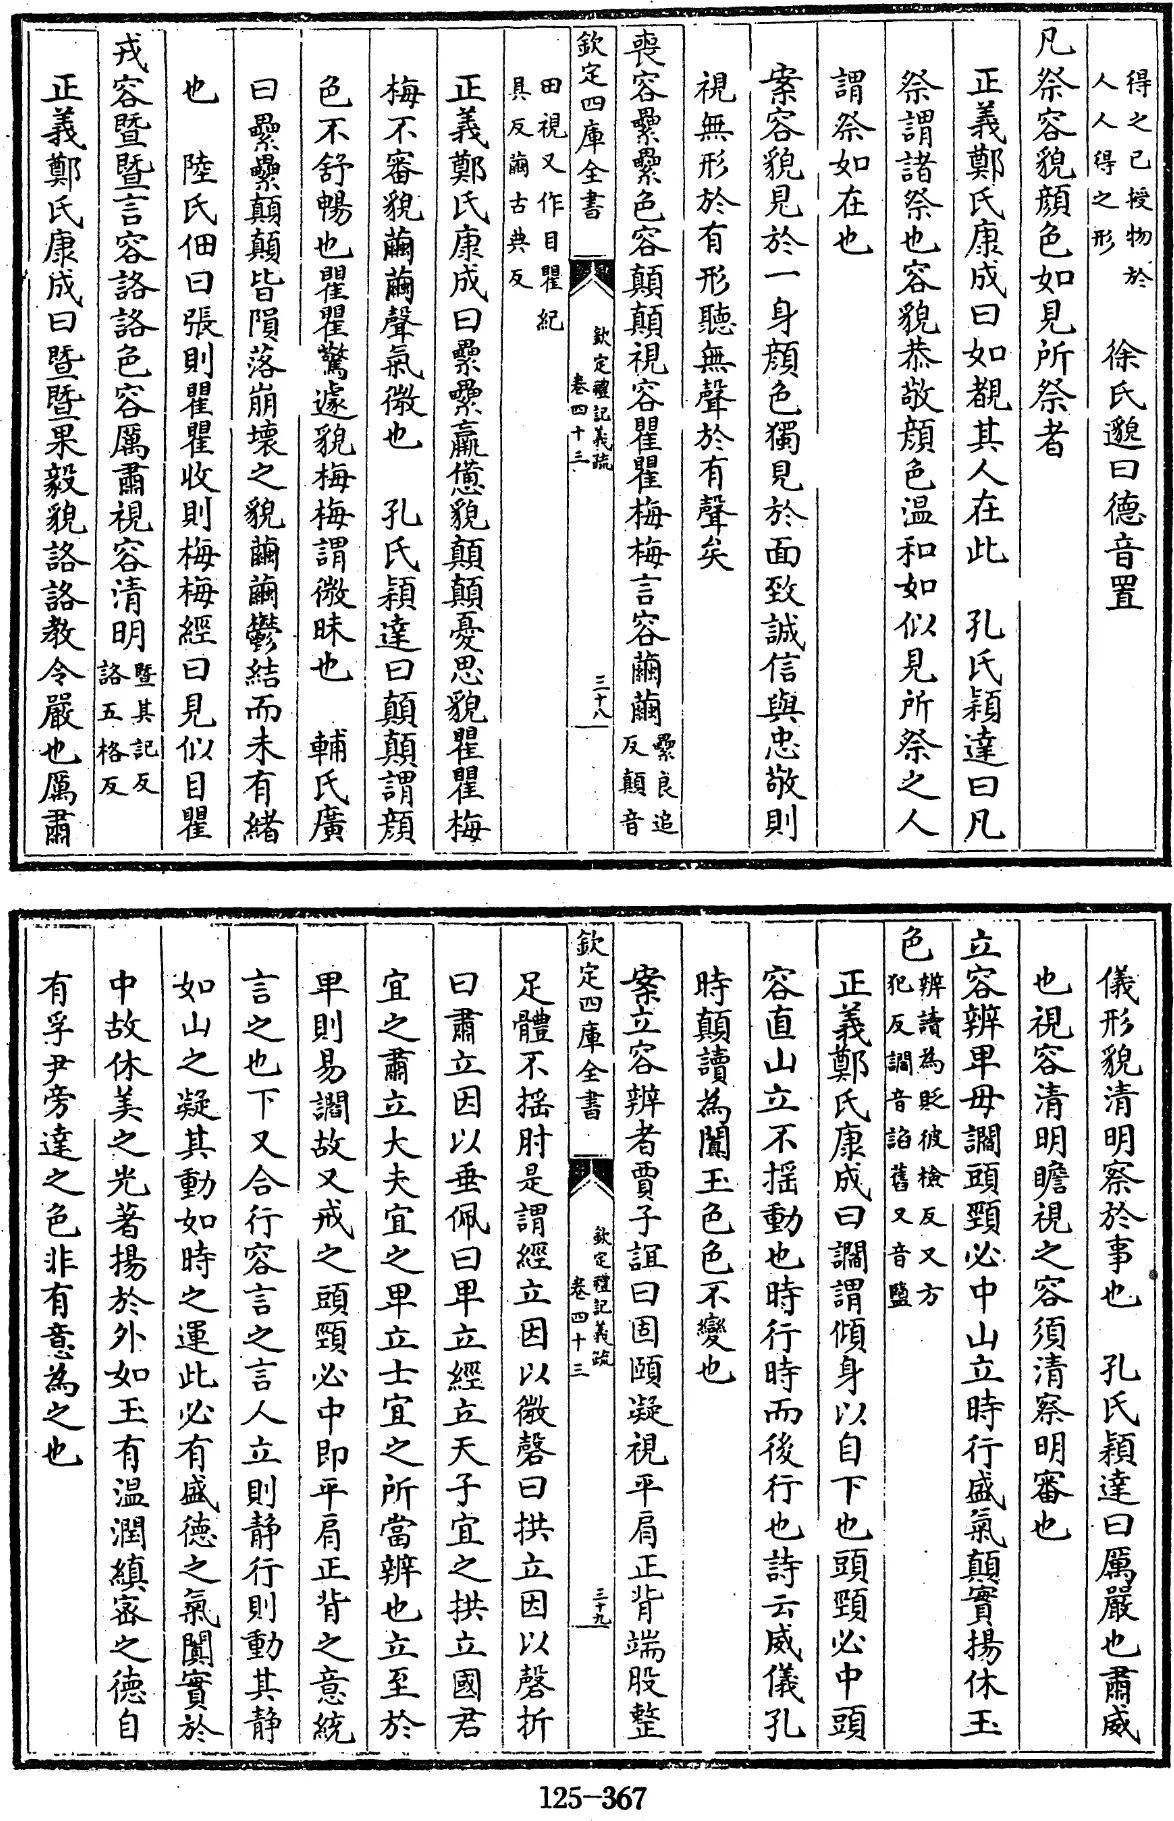 得之己授物於人人得之形　徐氏邈曰德音置
凡祭容貌顔色如見所祭者
正義鄭氏康成曰如覩其人在此　孔氏穎達曰凡
祭謂諸祭也容貌恭敬顔色温和如似見所祭之人
謂祭如在也
案容貌見於一身顔色獨見於面致誠信與忠敬則
視無形於有形聽無聲於有聲矣
喪容纍纍色容顛顛視容瞿瞿梅梅言容繭繭纍良追反顛音
欽定四庫全書　欽定禮記義疏卷四十三　三十八
田視又作目瞿紀具反繭古典反
正義鄭氏康成曰纍纍羸憊貌顛顛憂思貌瞿瞿梅
梅不審貌繭繭聲氣微也　孔氏穎達曰顛顛謂顔
色不舒暢也瞿瞿驚遽貌梅梅謂微昧也　輔氏廣
曰纍纍顛顛皆隕落崩壞之貌繭繭鬱結而未有緒
也　陸氏佃曰張則瞿瞿收則梅梅經曰見似目瞿
戎容暨暨言容詻詻色容厲肅視容清明暨其記反詻五格反
正義鄭氏康成曰暨暨果毅貌詻詻教令嚴也厲肅
儀形貌清明察於事也　孔氏穎達曰厲嚴也肅威
也視容清明瞻視之容須清察明審也
立容辨卑毋讇頭頸必中山立時行盛氣顛實揚休玉
色辨讀為貶彼檢反又方犯反讇音諂舊又音鹽
正義鄭氏康成曰讇謂傾身以自下也頭頸必中頭
容直山立不揺動也時行時而後行也詩云威儀孔
時顛讀為闐玉色色不變也
案立容辨者賈子誼曰固頤凝視平肩正背端股整
欽定四庫全書　欽定禮記義疏卷四十三　三十九
足體不揺肘是謂經立因以微磬曰拱立因以磬折
曰肅立因以垂佩曰卑立經立天子宜之拱立國君
宜之肅立大夫宜之卑立士宜之所當辨也立至於
卑則易讇故又戒之頭頸必中即平肩正背之意統
言之也下又合行容言之言人立則静行則動其静
如山之凝其動如時之運此必有盛德之氣闐實於
中故休美之光著揚於外如玉有温潤縝宻之德自
有孚尹旁達之色非有意為之也
125-367